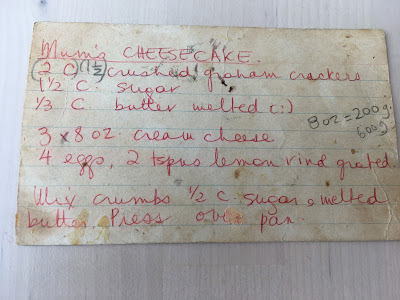 Mum's CHEESECAKE.
(2 C) (1½) crushed graham crackers
1½ C. sugar
⅓ C butter melted (:)
8 oz = 200g.
600g
3 x 8 oz. cream cheese
4 eggs, 2 tspns lemon rind grated
Mix crumbs ½ C. sugar & melted
butter. Press over pan.